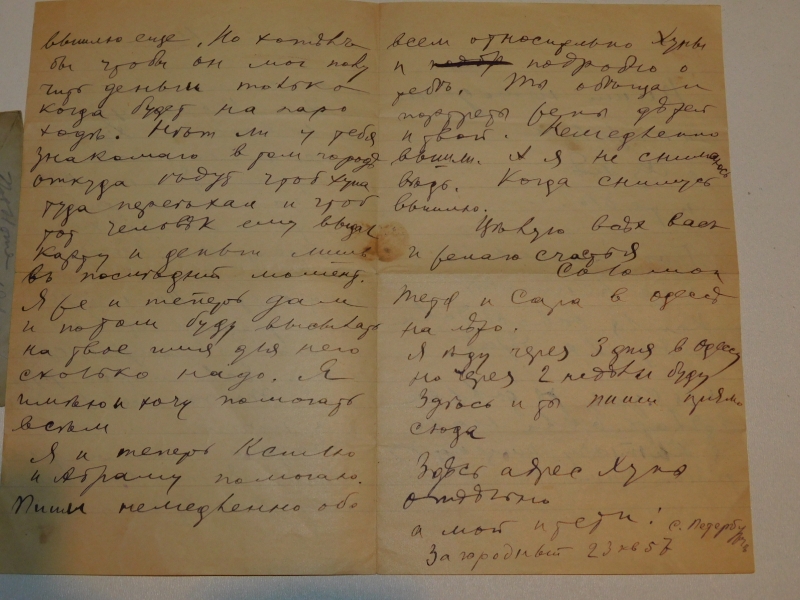 вышлю еще. Но хотѣлъ
бы чтобы он мог полу
чить деньги только
когда будет на паро
ходѣ. Нѣт ли у тебя
знакомаго в том городѣ
откуда ѣдут чтоб Хуна
туда переѣхал и чтоб
тот человѣк ему выдал
карту и деньги лишь
въ последний момент.
Я же и теперь дам
и потом буду высылать
на твое имя для него
сколько надо. Я
имѣю и хочу помогать
всѣм
Я и теперь
и Абраму помогаю.
Пиши немедленно обо
всем относительно Хуны
и подробно о
себѣ. Ты обѣщал
портреты жены дѣтей
и твой. Немедленно
вышли. Я не снимался
вѣдь. Когда снимусь
вышлю.
Цѣлую всѣх вас
и желаю счастья
Соломон
и Сара в Одессѣ
на лѣто.
Я ѣду через 3 дня в Одессу
но через 2 недѣли буду
Здѣсь и ты пиши прямо
сюда
Здѣсь адрес Хуны
отдѣльно
а мой и тети! С. Петербург
Загородный 23 кв 57